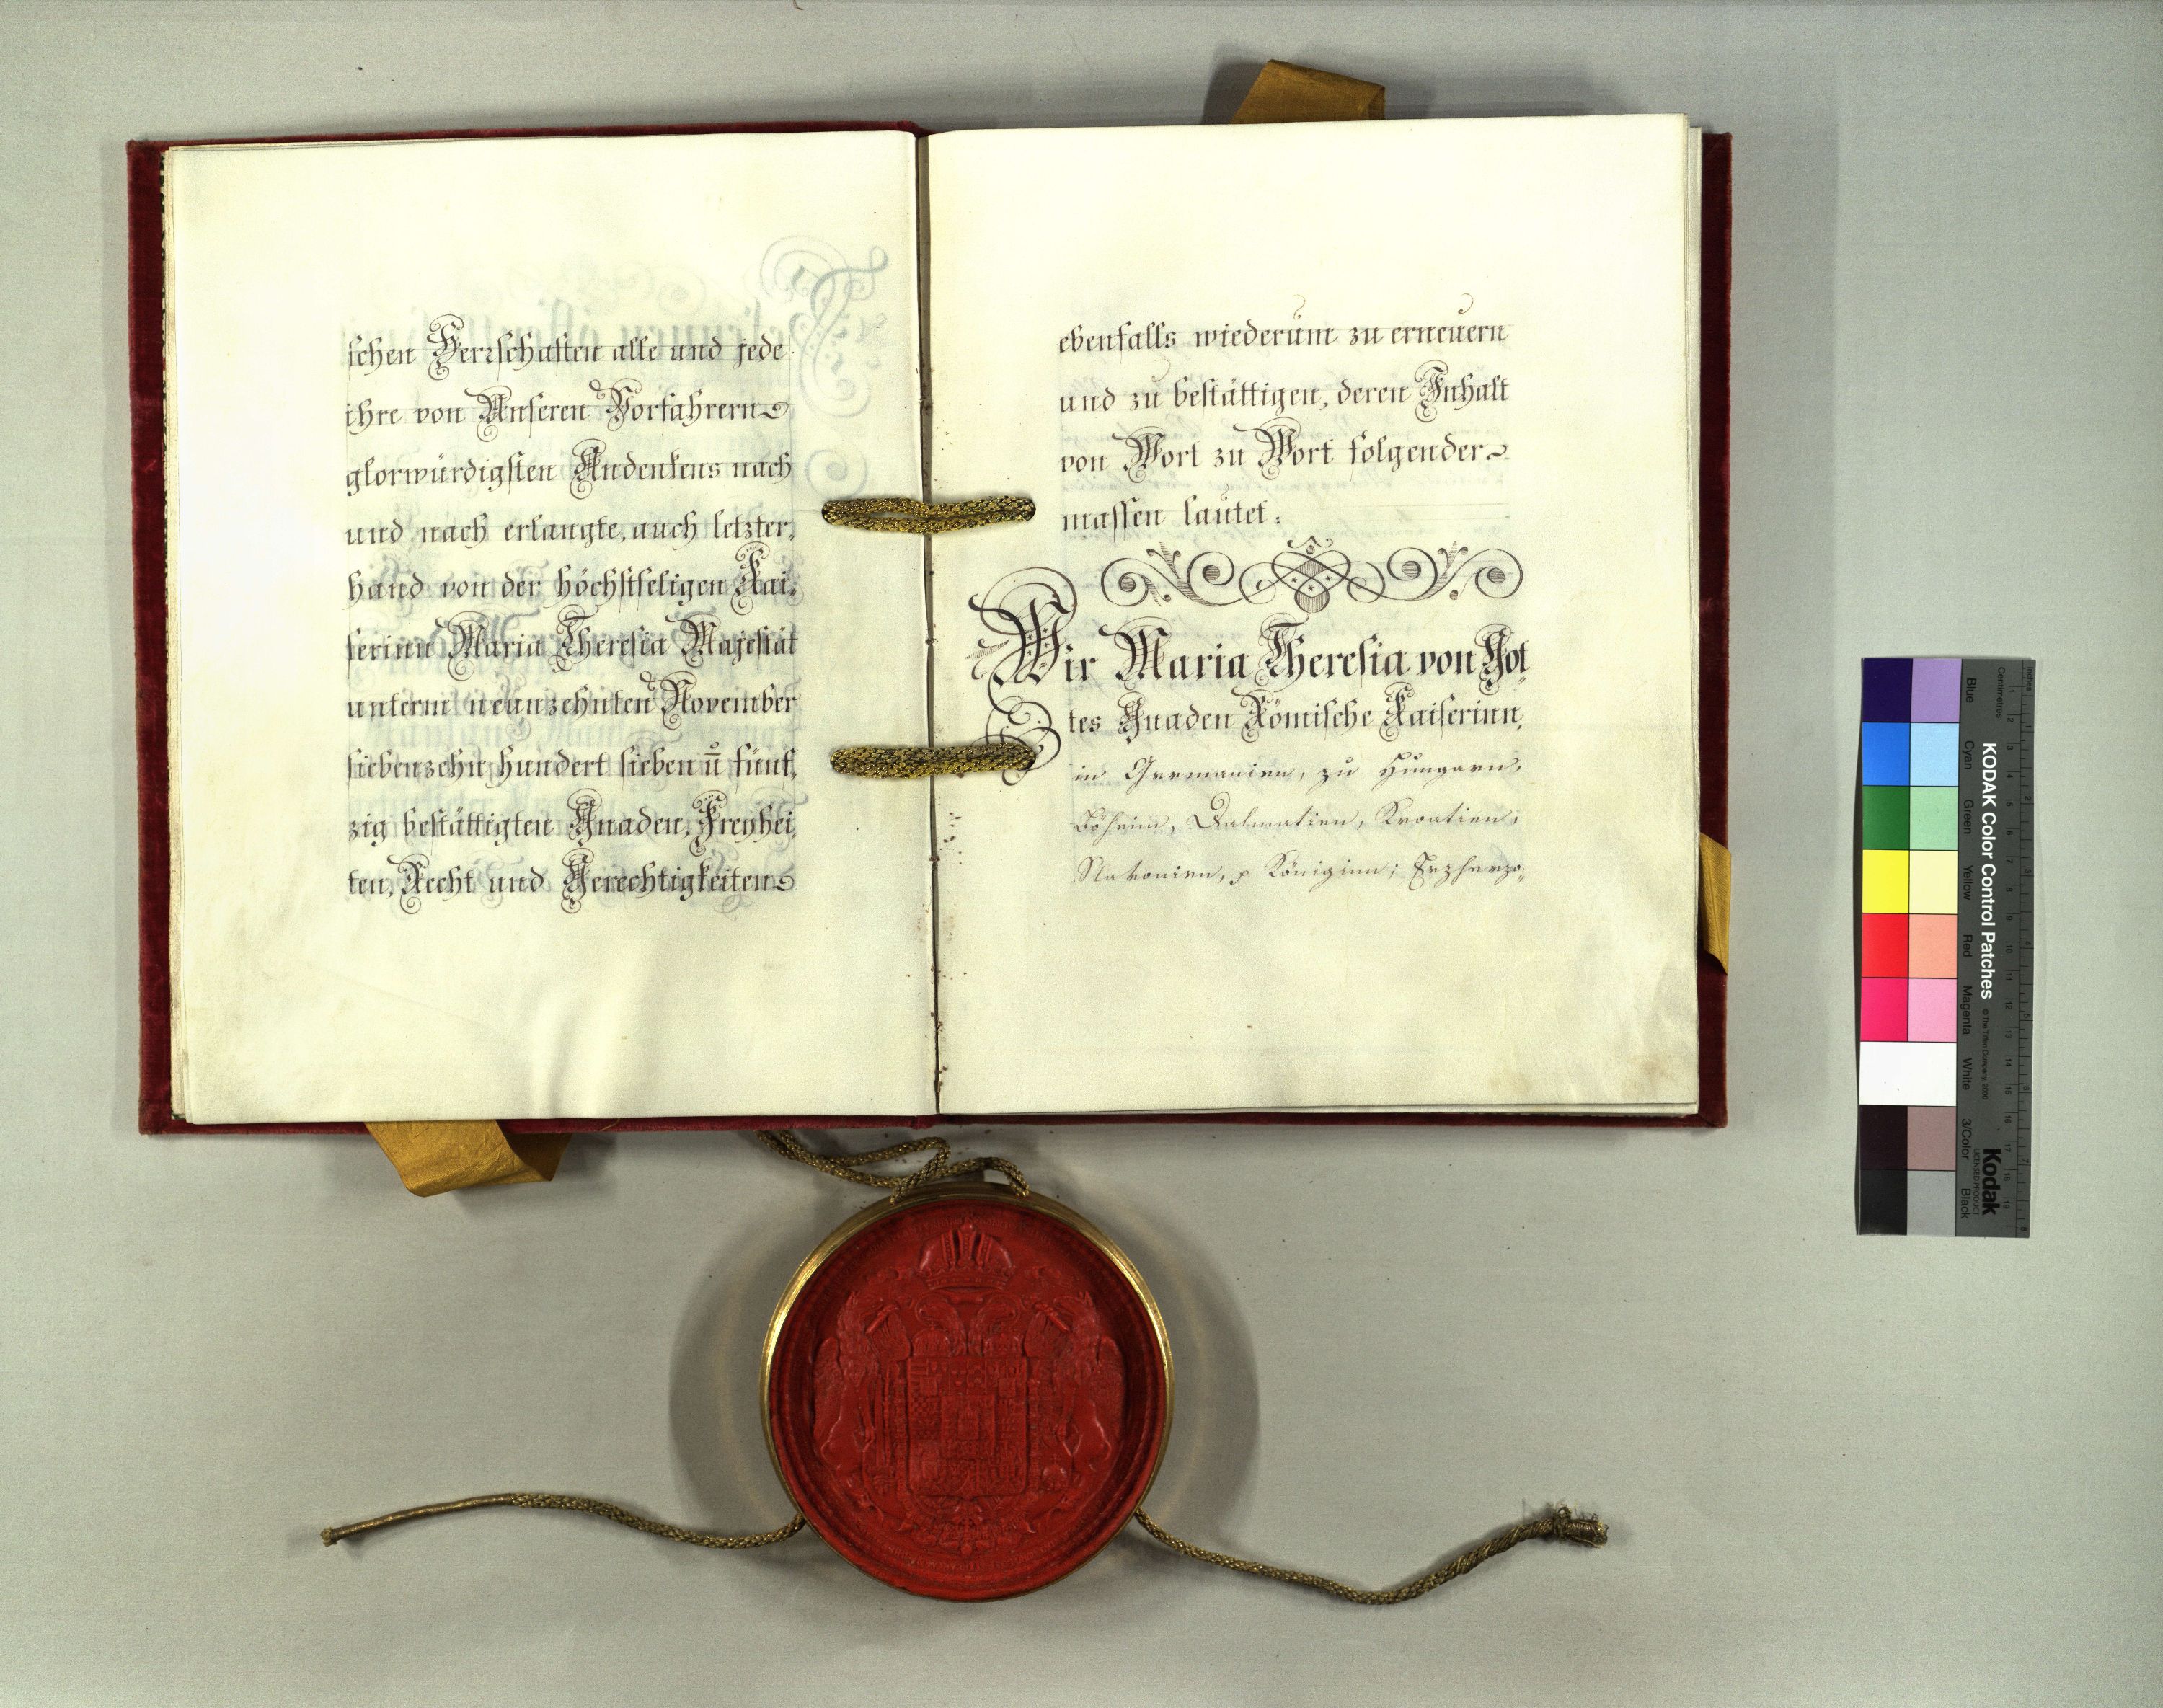 schen Herrschaften alle und jede
ihre von Unseren Vorfahrern
glorwürdigsten Andenkens nach
und nach erlangte, auch letzter,
hand von der höchstseligen Kai,
serinn Maria Theresia Majestät
unterm neunzehnten November
siebenzehn hundert sieben ū fünf,
zig bestättigten Gnaden, Freyhei,
ten, Recht und Gerechtigkeiten
ebenfalls wiederum zu erneuern
und zu bestättigen, deren Inhalt
von Wort zu Wort folgender
massen lautet:
Wir Maria Theresia von Got,
tes Gnaden Römische Kaiserinn,
in Germanien, zu Hungarn,
Böheim, Dalmatien, Kroatien,
Slavonien, p Königinn; Erzherzo,
KODAK Color Control Patches
© The Tiffen Company, 2000
Kodak
LICENSED PRODUCT
Inches
Centimetres
Blue
Cyan
Green
Yellow
Red
Magenta
White
3/Color
Black